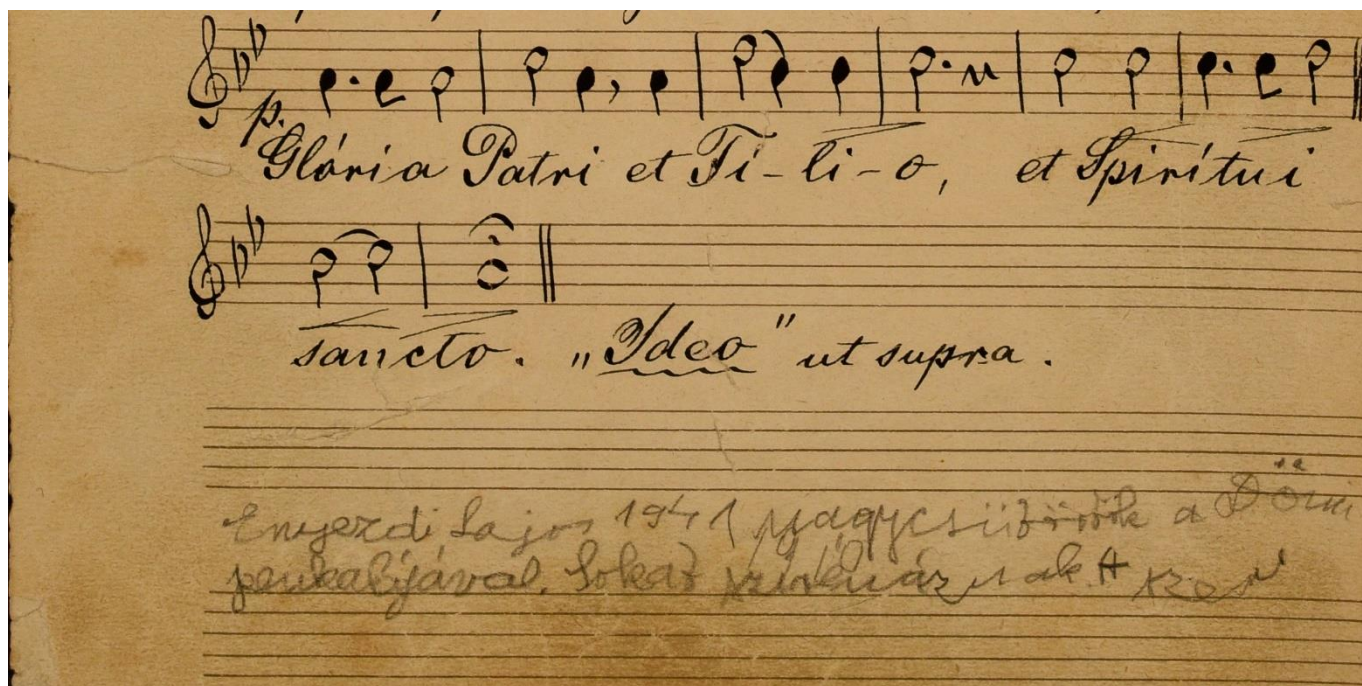 p.
Glória Patri et Fi-li-o, et Spirítui
sancto. „Ideo" ut supra.
Enyezdi Lajos 1941 Nagycsütörtök a